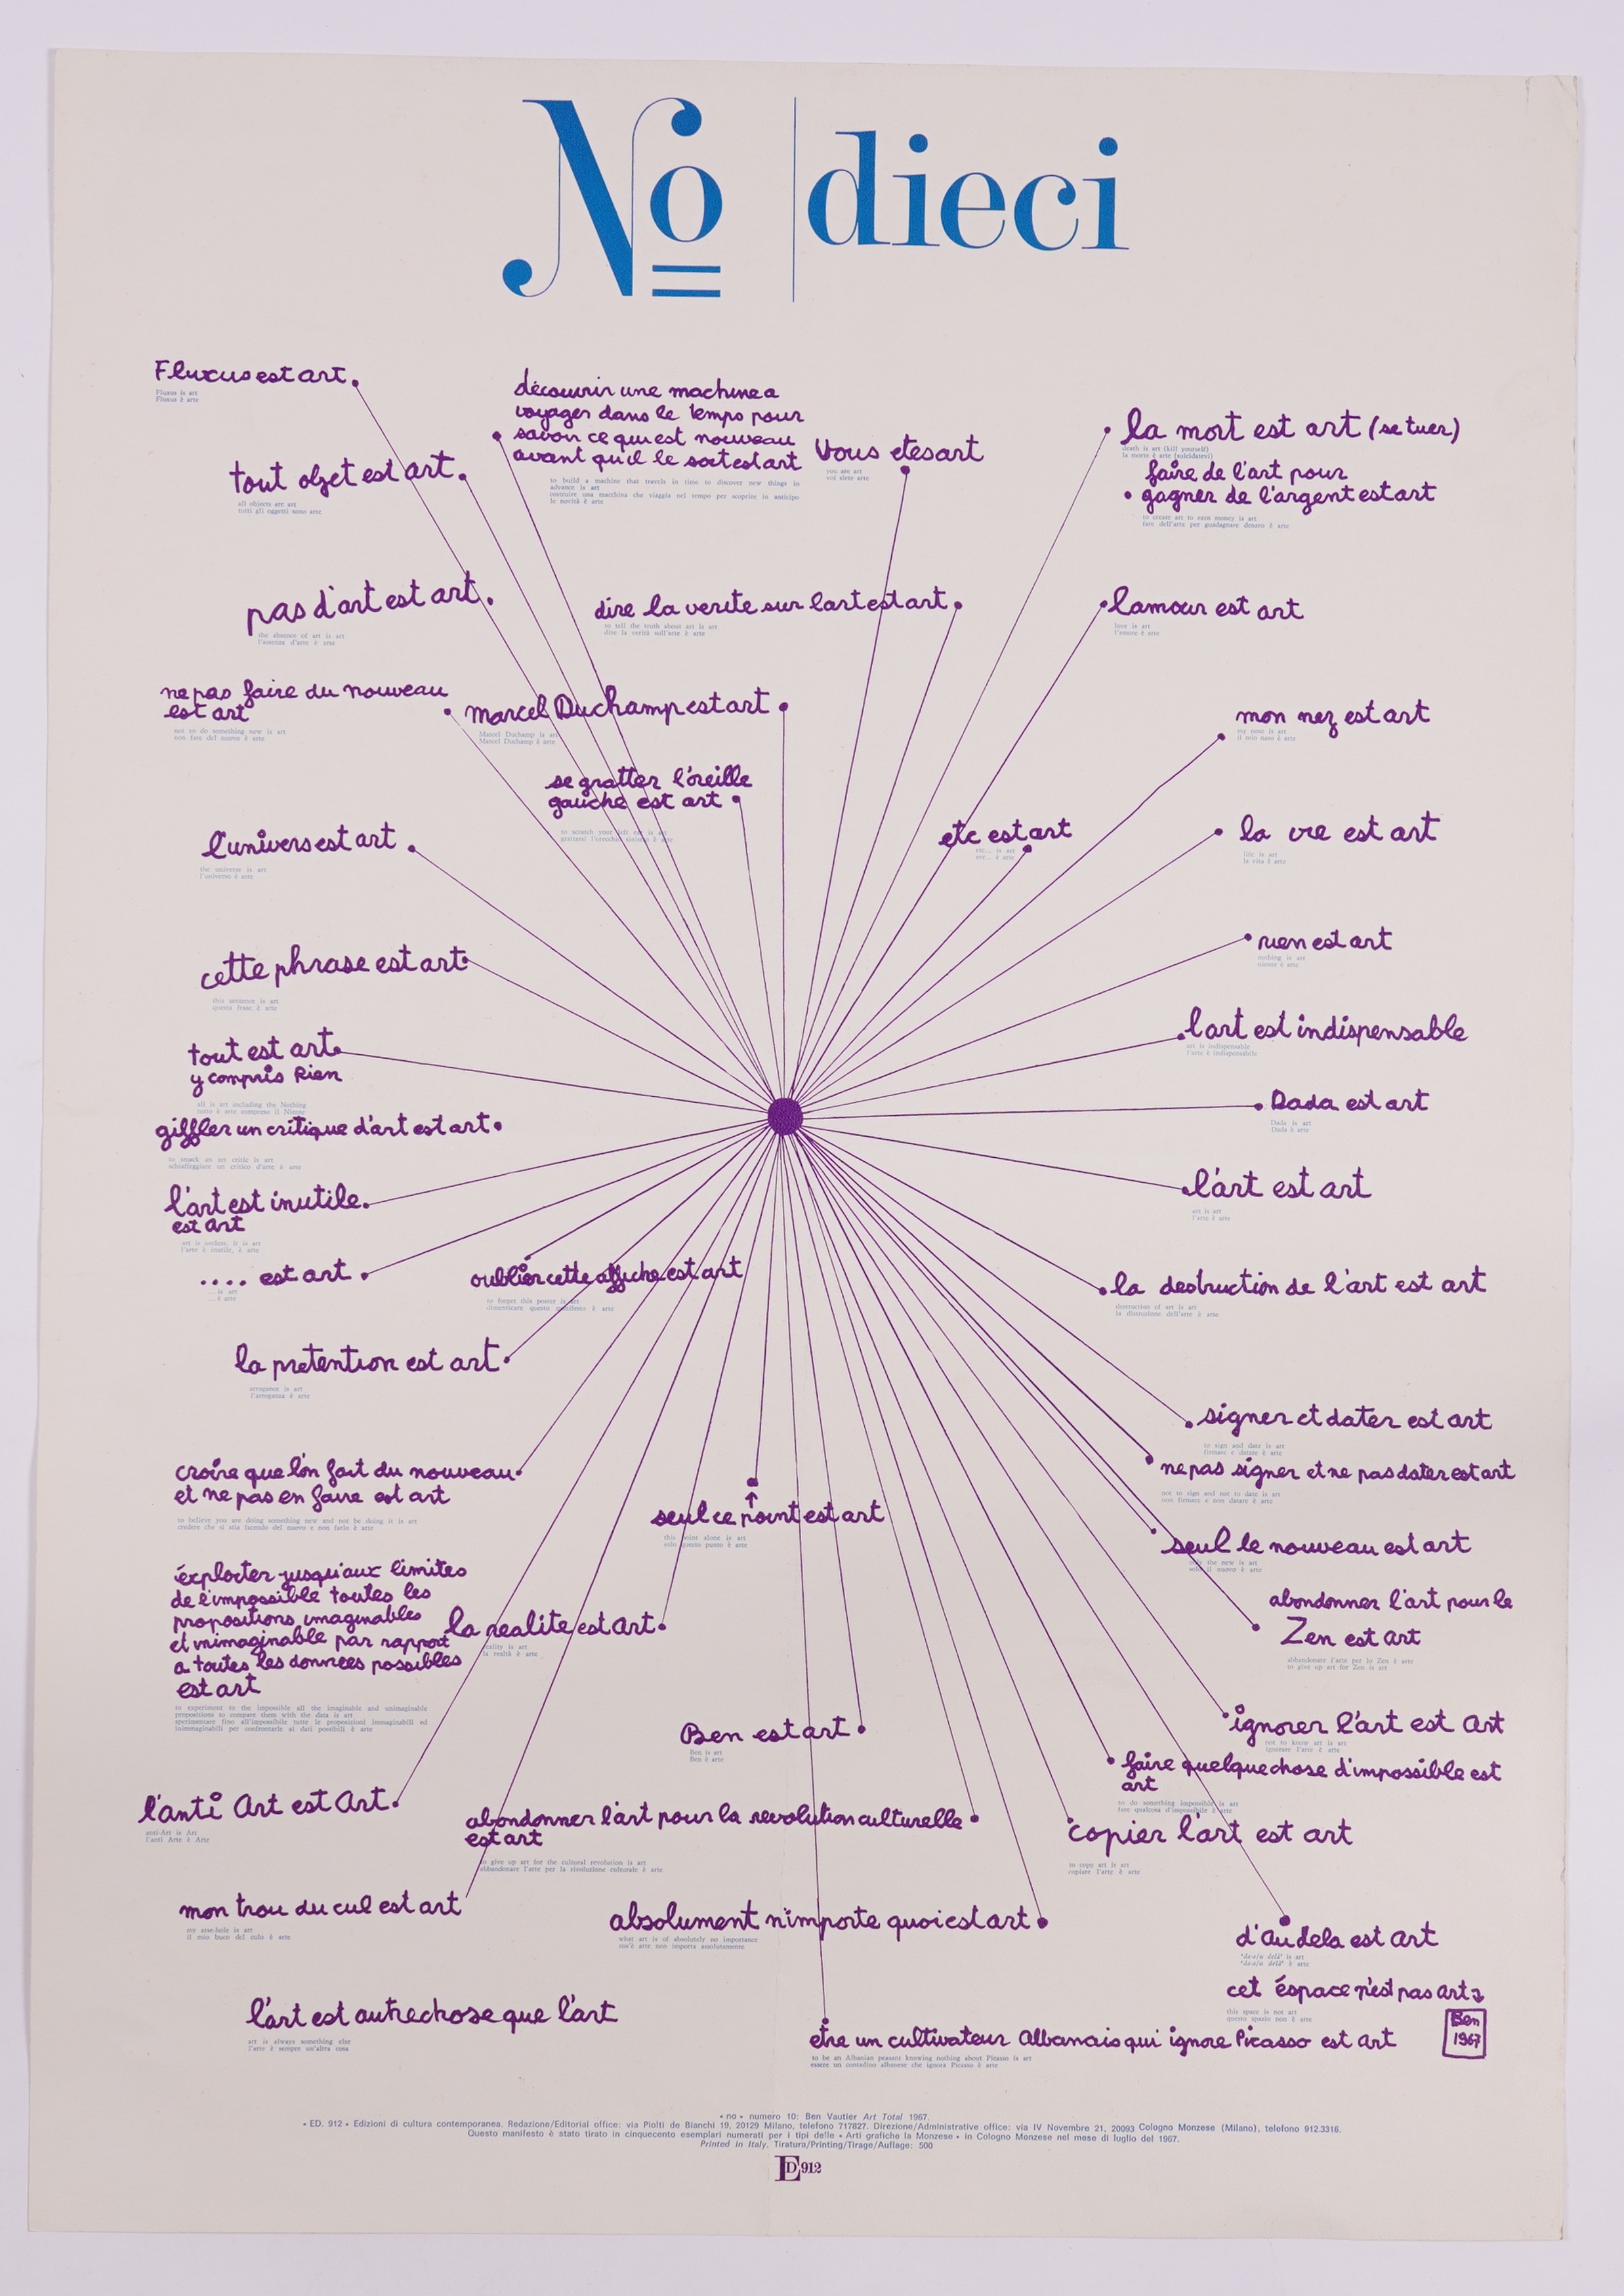 No dieci
Fluxus est art
Fluxus is art
Fluxus è arte
découvrir une machine a
voyager dans le temps pour
savoir ce qui est nouveau
avant qu'il le soit est art
to build a machine that travels in time to discover new things in
advance is art
costruire una macchina che viaggia nel tempo per scoprire in anticipo
le novità è arte
Vous etes art
you are art
voi siete arte
la mort est art (se tuer)
death is art (kill yourself)
la morte è arte (suicidatevi)
faire de l'art pour
gagner de l'argent est art
to create art to earn money is art
fare dell'arte per guadagnare denaro è arte
tout objet est art
all objects are art
tutti gli oggetti sono arte
pas d'art est art
the absence of art is art
l'assenza d'arte è arte
dire la verite sur lart est art
to tell the truth about art is art
dire la verità sull'arte è arte
lamour est art
love is art
l'amore è arte
ne pas faire du nouveau
est art
not to do something new is art
non fare del nuovo è arte
marcel Duchamp est art
Marcel Duchamp is art
Marcel Duchamp è arte
mon nez est art
my nose is art
il mio naso è arte
se gratter l'oreille
gauche est art
to scratch your left ear is art
grattarsi l'orecchio sinistro è arte
etc est art
etc... is art
ecc... è arte
la vie est art
life is art
la vita è arte
l'univers est art
the universe is art
l'universo è arte
cette phrase est art
this sentence is art
questa frase è arte
rien est art
nothing is art
niente è arte
l'art est indispensable
art is indispensable
l'arte è indispensabile
tout est art
y compris Rien
all is art including the Nothing
tutto è arte compreso il Niente
Dada est art
Dada is art
Dada è arte
giffler un critique d'art est art
to smack an art critic is art
schiaffeggiare un critico d'arte è arte
l'art est art
art is art
l'arte è arte
l'art est inutile
est art
art is useless, it is art
l'arte è inutile, è arte
.... est art
... is art
... è arte
oublier cette affiche est art
to forget this poster is art
dimenticare questo manifesto è arte
la destruction de l'art est art
destruction of art is art
la distruzione dell'arte è arte
la pretention est art
arrogance is art
l'arroganza è arte
signer et dater est art
to sign and date is art
firmare e datare è arte
croire que l'on fait du nouveau
et ne pas en faire est art
to believe you are doing something new and not be doing it is art
credere che si stia facendo del nuovo e non farlo è arte
ne pas signer et ne pas dater est art
not to sign and not to date is art
non firmare e non datare è arte
seul ce point est art
this point alone is art
solo questo punto è arte
seul le nouveau est art
only the new is art
solo il nuovo è arte
éxploiter jusqu'aux limites
de l'impossible toutes les
propositions imaginables
et inimaginable par rapport
a toutes les données possibles
est art
to experiment to the impossible all the imaginable and unimaginable
propositions to compare them with the data is art
sperimentare fino all'impossibile tutte le proposizioni immaginabili ed
inimmaginabili per confrontarle ai dati possibili è arte
la realite est art
reality is art
la realtà è arte
abondonner l'art pour le
Zen est art
abbandonare l'arte per lo Zen è arte
to give up art for Zen is art
Ben est art
Ben is art
Ben è arte
ignorer l'art est art
not to know art is art
ignorare l'arte è arte
faire quelque chose d'impossible est
art
to do something impossible is art
fare qualcosa d'impossibile è arte
l'anti Art est Art
anti-Art is Art
l'anti Arte è Arte
abondonner l'art pour la revolution culturelle
est art
to give up art for the cultural revolution is art
abbandonare l'arte per la rivoluzione culturale è arte
copier l'art est art
to copy art is art
copiare l'arte è arte
mon trou du cul est art
my arse-hole is art
il mio buco del culo è arte
absolument n'importe quoi est art
what art is of absolutely no importance
cos'è arte non importa assolutamente
d'au dela est art
"da-a/u delà" is art
"da-a/u delà" è arte
cet éspace n'est pas art
this space is not art
questo spazio non è arte
l'art est autre chose que l'art
art is always something else
l'arte è sempre un'altra cosa
être un cultivateur Albanais qui ignore Picasso est art
to be an Albanian peasant knowing nothing about Picasso is art
essere un contadino albanese che ignora Picasso è arte
Ben
1967
• no • numero 10: Ben Vautier Art Total 1967.
• ED. 912 • Edizioni di cultura contemporanea. Redazione/Editorial office: via Piolti de Bianchi 19, 20129 Milano, telefono 717827. Direzione/Administrative office: via IV Novembre 21, 20093 Cologno Monzese (Milano), telefono 912.3316.
Questo manifesto è stato tirato in cinquecento esemplari numerati per i tipi delle • Arti grafiche la Monzese • in Cologno Monzese nel mese di luglio del 1967.
Printed in Italy. Tiratura/Printing/Tirage/Auflage: 500
ED 912